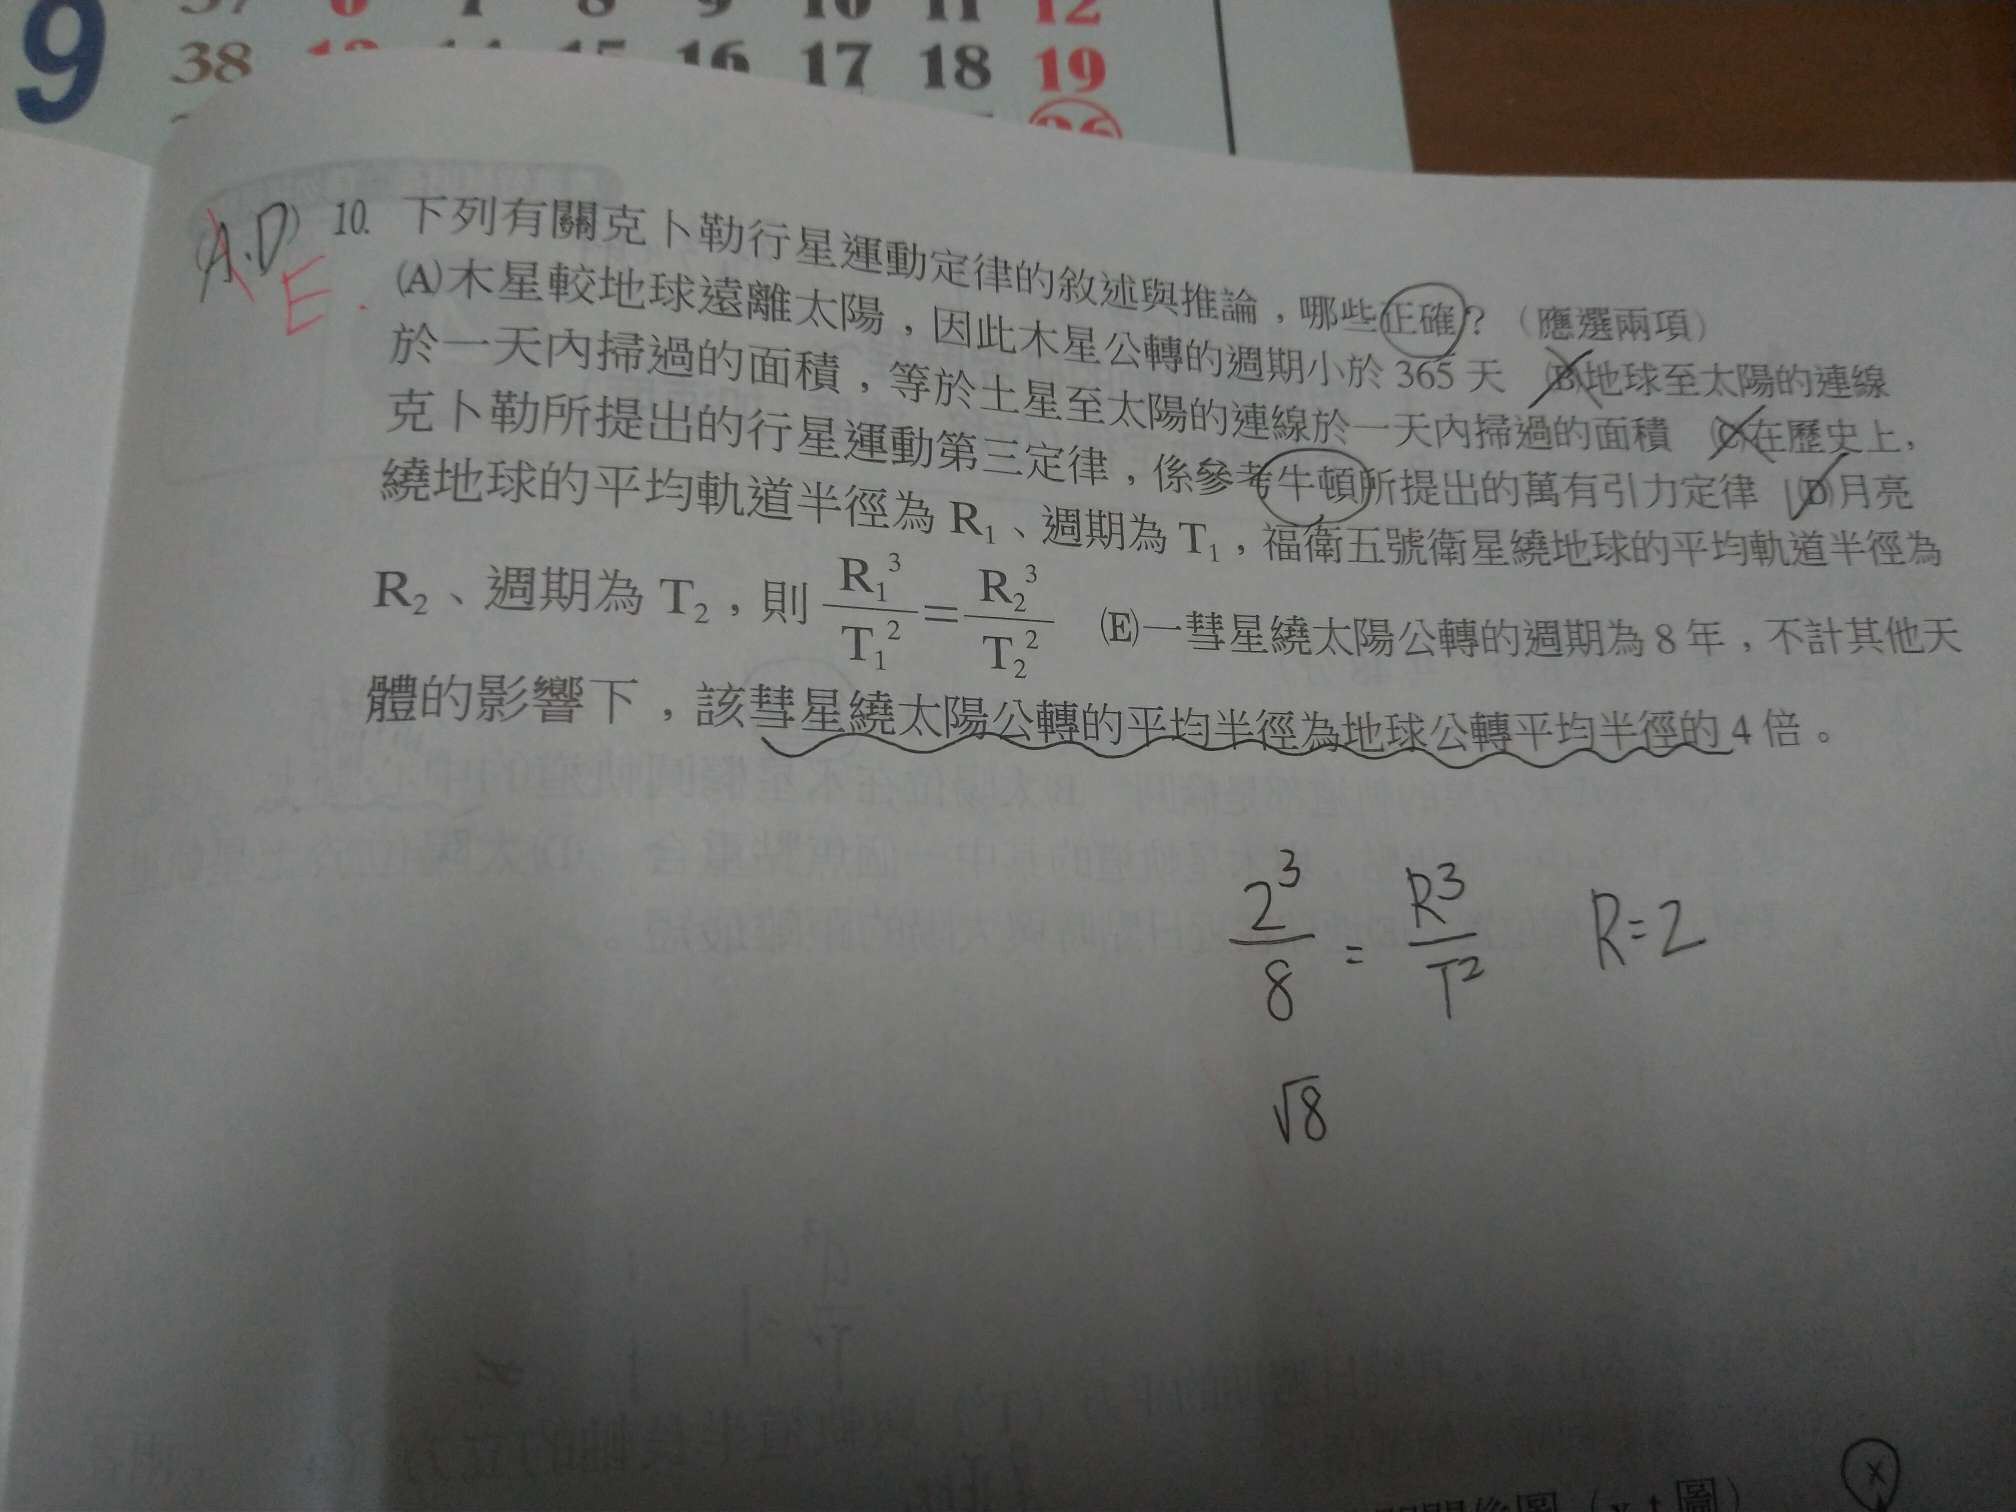 9
37 6 7 8 9 10 11 12
38 13 14 15 16 17 18 19
26
(A.D) 10. 下列有關克卜勒行星運動定律的敘述與推論，哪些正確？（應選兩項）
E.
(A)木星較地球遠離太陽，因此木星公轉的週期小於 365 天 (B)地球至太陽的連線
於一天內掃過的面積，等於土星至太陽的連線於一天內掃過的面積 (C)在歷史上，
克卜勒所提出的行星運動第三定律，係參考牛頓所提出的萬有引力定律 (D)月亮
繞地球的平均軌道半徑為 R₁、週期為 T₁，福衛五號衛星繞地球的平均軌道半徑為
R₂、週期為 T₂，則 R₁³/T₁² = R₂³/T₂² (E)一彗星繞太陽公轉的週期為 8 年，不計其他天
體的影響下，該彗星繞太陽公轉的平均半徑為地球公轉平均半徑的 4 倍。
2³/8 = R³/T² R=2
√8
x